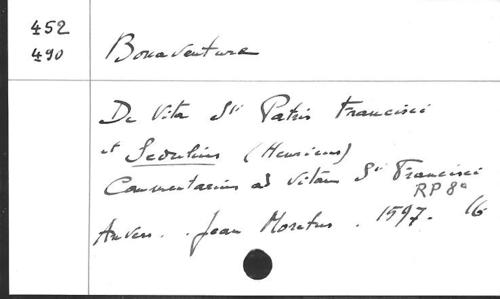 452
490
Bonaventure
De Vita Sti Patris Francisci
et Sedulius (Henricus)
Commentarius ad vitam Sti Francisci
RP 8°
Anvers. Jean Moretus. 1597. 16